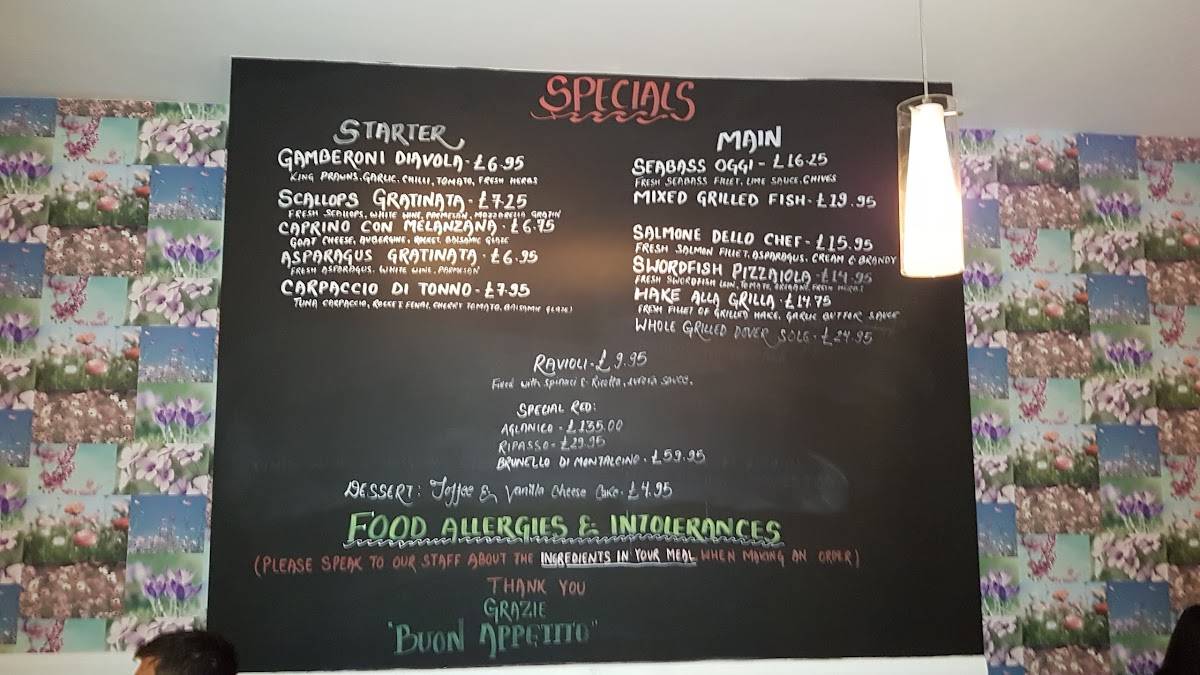 SPECIALS
STARTER
GAMBERONI DIAVOLA - £6.95
KING PRAWNS, GARLIC, CHILLI, TOMATO, FRESH HERBS
SCALLOPS GRATINATA - £7.25
FRESH SCALLOPS, WHITE WINE, PARMESAN, MOZZARELLA GRATIN
CAPRINO CON MELANZANA - £6.75
GOAT CHEESE, AUBERGINE, ROCKET, BALSAMIC GLAZE
ASPARAGUS GRATINATA - £6.95
FRESH ASPARAGUS, WHITE WINE, PARMESAN
CARPACCIO DI TONNO - £7.95
TUNA CARPACCIO, ROCKET, CHERRY TOMATO, BALSAMIC GLAZE
MAIN
SEABASS OGGI - £16.25
FRESH SEABASS FILLET, LIME SAUCE, CHIVES
MIXED GRILLED FISH - £19.95
SALMONE DELLO CHEF - £15.95
FRESH SALMON FILLET, ASPARAGUS, CREAM & BRANDY
SWORDFISH PIZZAIOLA - £14.95
FRESH SWORDFISH LOIN, TOMATO, OREGANO, FRESH HERBS
HAKE ALLA GRILLA - £14.75
FRESH FILLET OF GRILLED HAKE, GARLIC BUTTER SAUCE
WHOLE GRILLED DOVER SOLE - £24.95
RAVIOLI - £9.95
with spinaci & Ricotta, sauce.
SPECIAL RED:
AGLANICO - £135.00
RIPASSO - £29.95
BRUNELLO DI MONTALCINO - £59.95
DESSERT: Toffee & Vanilla Cheese Cake - £4.95
FOOD ALLERGIES & INTOLERANCES
(PLEASE SPEAK TO OUR STAFF ABOUT THE INGREDIENTS IN YOUR MEAL WHEN MAKING AN ORDER)
THANK YOU
GRAZIE
"BUON APPETITO"